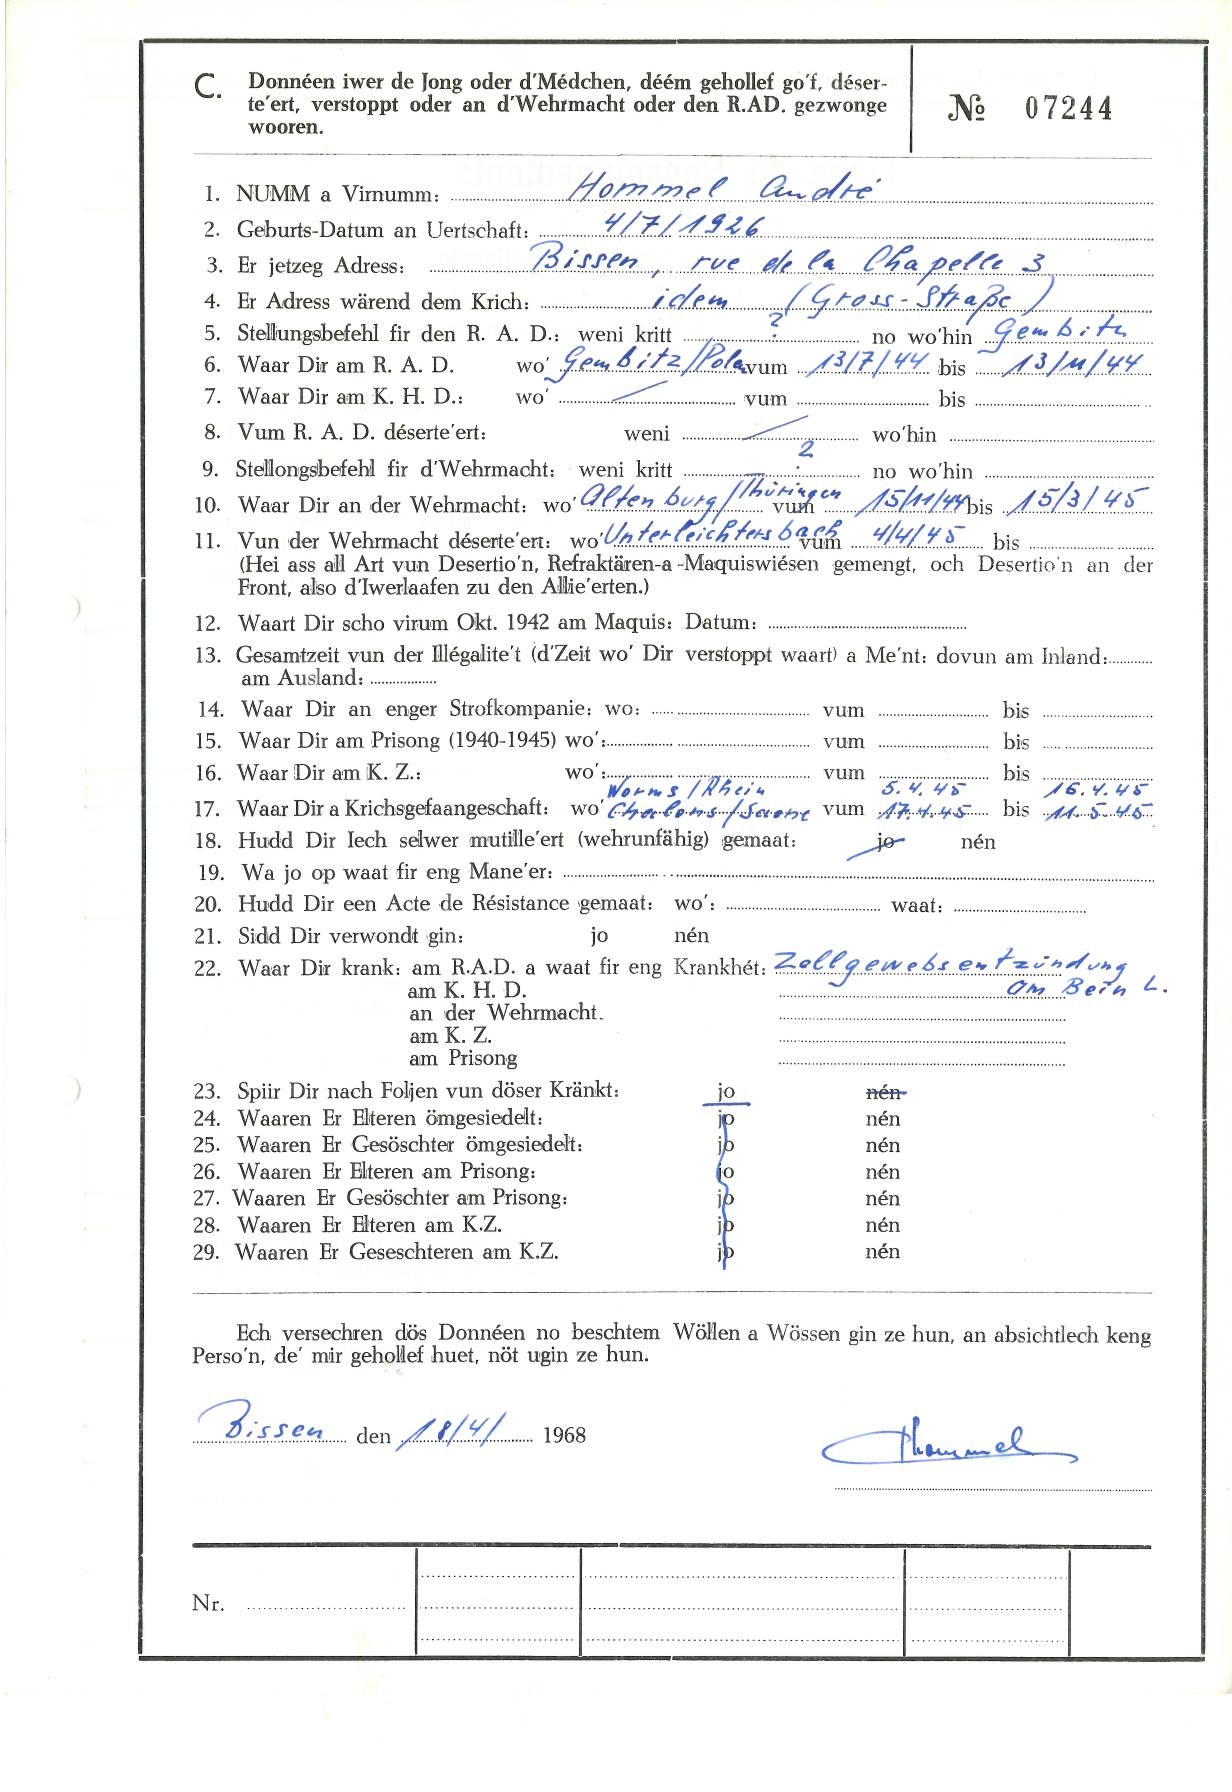 C. Donnéen iwer de Jong oder d'Médchen, déém gehollef go'f, déser-
te'ert, verstoppt oder an d'Wehrmacht oder den R.AD. gezwonge
wooren.
№ 07244
1. NUMM a Virnumm: Hommel André
2. Geburts-Datum an Uertschaft: 4/7/1926
3. Er jetzeg Adress: Bissen, rue de la Chapelle 3
4. Er Adress wärend dem Krich: idem (Gross-Straße)
5. Stellungsbefehl fir den R. A. D.: weni kritt ? no wo'hin Gembitz
6. Waar Dir am R. A. D. wo' Gembitz/Polen vum 13/7/44 bis 13/11/44
7. Waar Dir am K. H. D.: wo' vum bis
8. Vum R. A. D. déserte'ert: weni wo'hin
9. Stellongsbefehl fir d'Wehrmacht: weni kritt ? no wo'hin
10. Waar Dir an der Wehrmacht: wo' Altenburg/Thüringen vum 15/11/44 bis 15/3/45
11. Vun der Wehrmacht déserte'ert: wo' Unterleichtersbach vum 4/4/45 bis
(Hei ass all Art vun Desertio'n, Refraktären-a-Maquiswiésen gemengt, och Desertio'n an der
Front, also d'Iwerlaafen zu den Allie'erten.)
12. Waart Dir scho virum Okt. 1942 am Maquis: Datum:
13. Gesamtzeit vun der Illégalite't (d'Zeit wo' Dir verstoppt waart) a Me'nt: dovun am Inland:
am Ausland:
14. Waar Dir an enger Strofkompanie: wo: vum bis
15. Waar Dir am Prisong (1940-1945) wo': vum bis
16. Waar Dir am K. Z.: wo': vum bis
Worms/Rhein 5.4.45 16.4.45
17. Waar Dir a Krichsgefaangeschaft: wo' Chalons/Saone vum 17.4.45 bis 11.5.45
18. Hudd Dir Iech selwer mutille'ert (wehrunfähig) gemaat: jo nén
19. Wa jo op waat fir eng Mane'er:
20. Hudd Dir een Acte de Résistance gemaat: wo': waat:
21. Sidd Dir verwondt gin: jo nén
22. Waar Dir krank: am R.A.D. a waat fir eng Krankhét: Zellgewebsentzündung
am K. H. D. am Bein L.
an der Wehrmacht.
am K. Z.
am Prisong
23. Spiir Dir nach Foljen vun döser Kränkt: jo nén
24. Waaren Er Elteren ömgesiedelt: jo nén
25. Waaren Er Gesöschter ömgesiedelt: jo nén
26. Waaren Er Elteren am Prisong: jo nén
27. Waaren Er Gesöschter am Prisong: jo nén
28. Waaren Er Elteren am K.Z. jo nén
29. Waaren Er Geseschteren am K.Z. jo nén
Ech versechren dös Donnéen no beschtem Wöllen a Wössen gin ze hun, an absichtlech keng
Perso'n, de' mir gehollef huet, nöt ugin ze hun.
Bissen den 18/4/ 1968
Hommel
Nr.